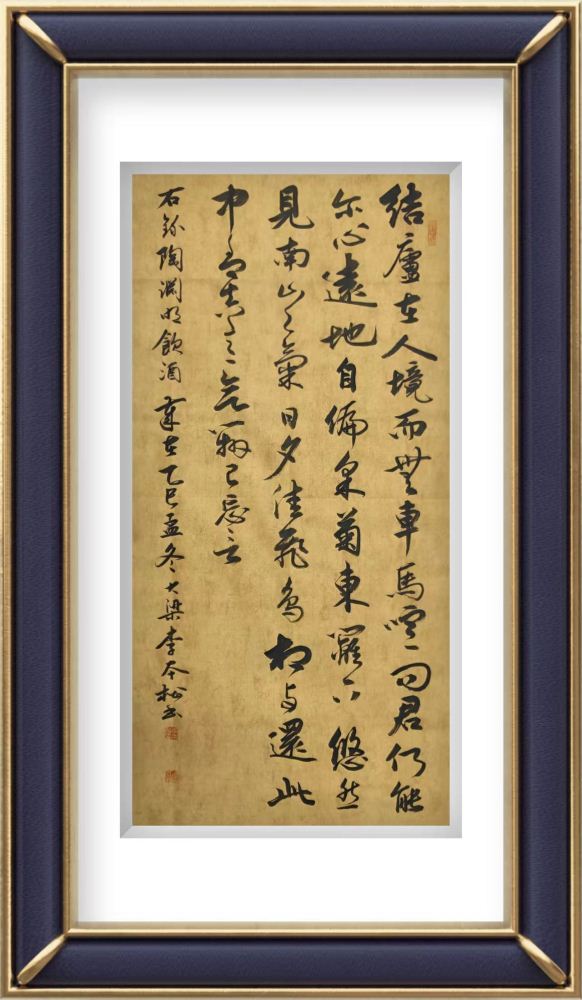 結廬在人境而無車馬喧問君何能
尔心遠地自偏采菊東籬下悠然
見南山々氣日夕佳飛鳥相与還此
中有真意欲辨已忘言
右錄陶淵明飲酒 歲在乙巳孟冬大梁李本松书